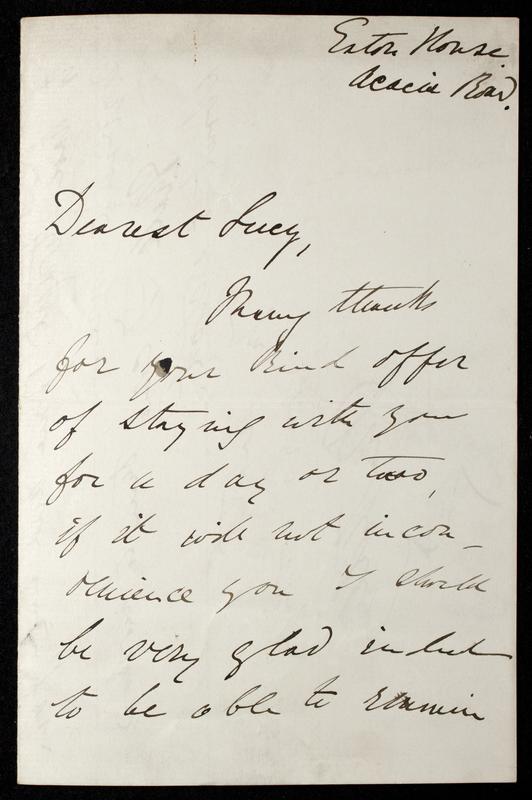 Eaton House
Acacia Road.
Dearest Lucy,
Many thanks
for your kind offer
of staying with you
for a day or two,
if it will not incon-
venience you I should
be very glad indeed
to be able to remain